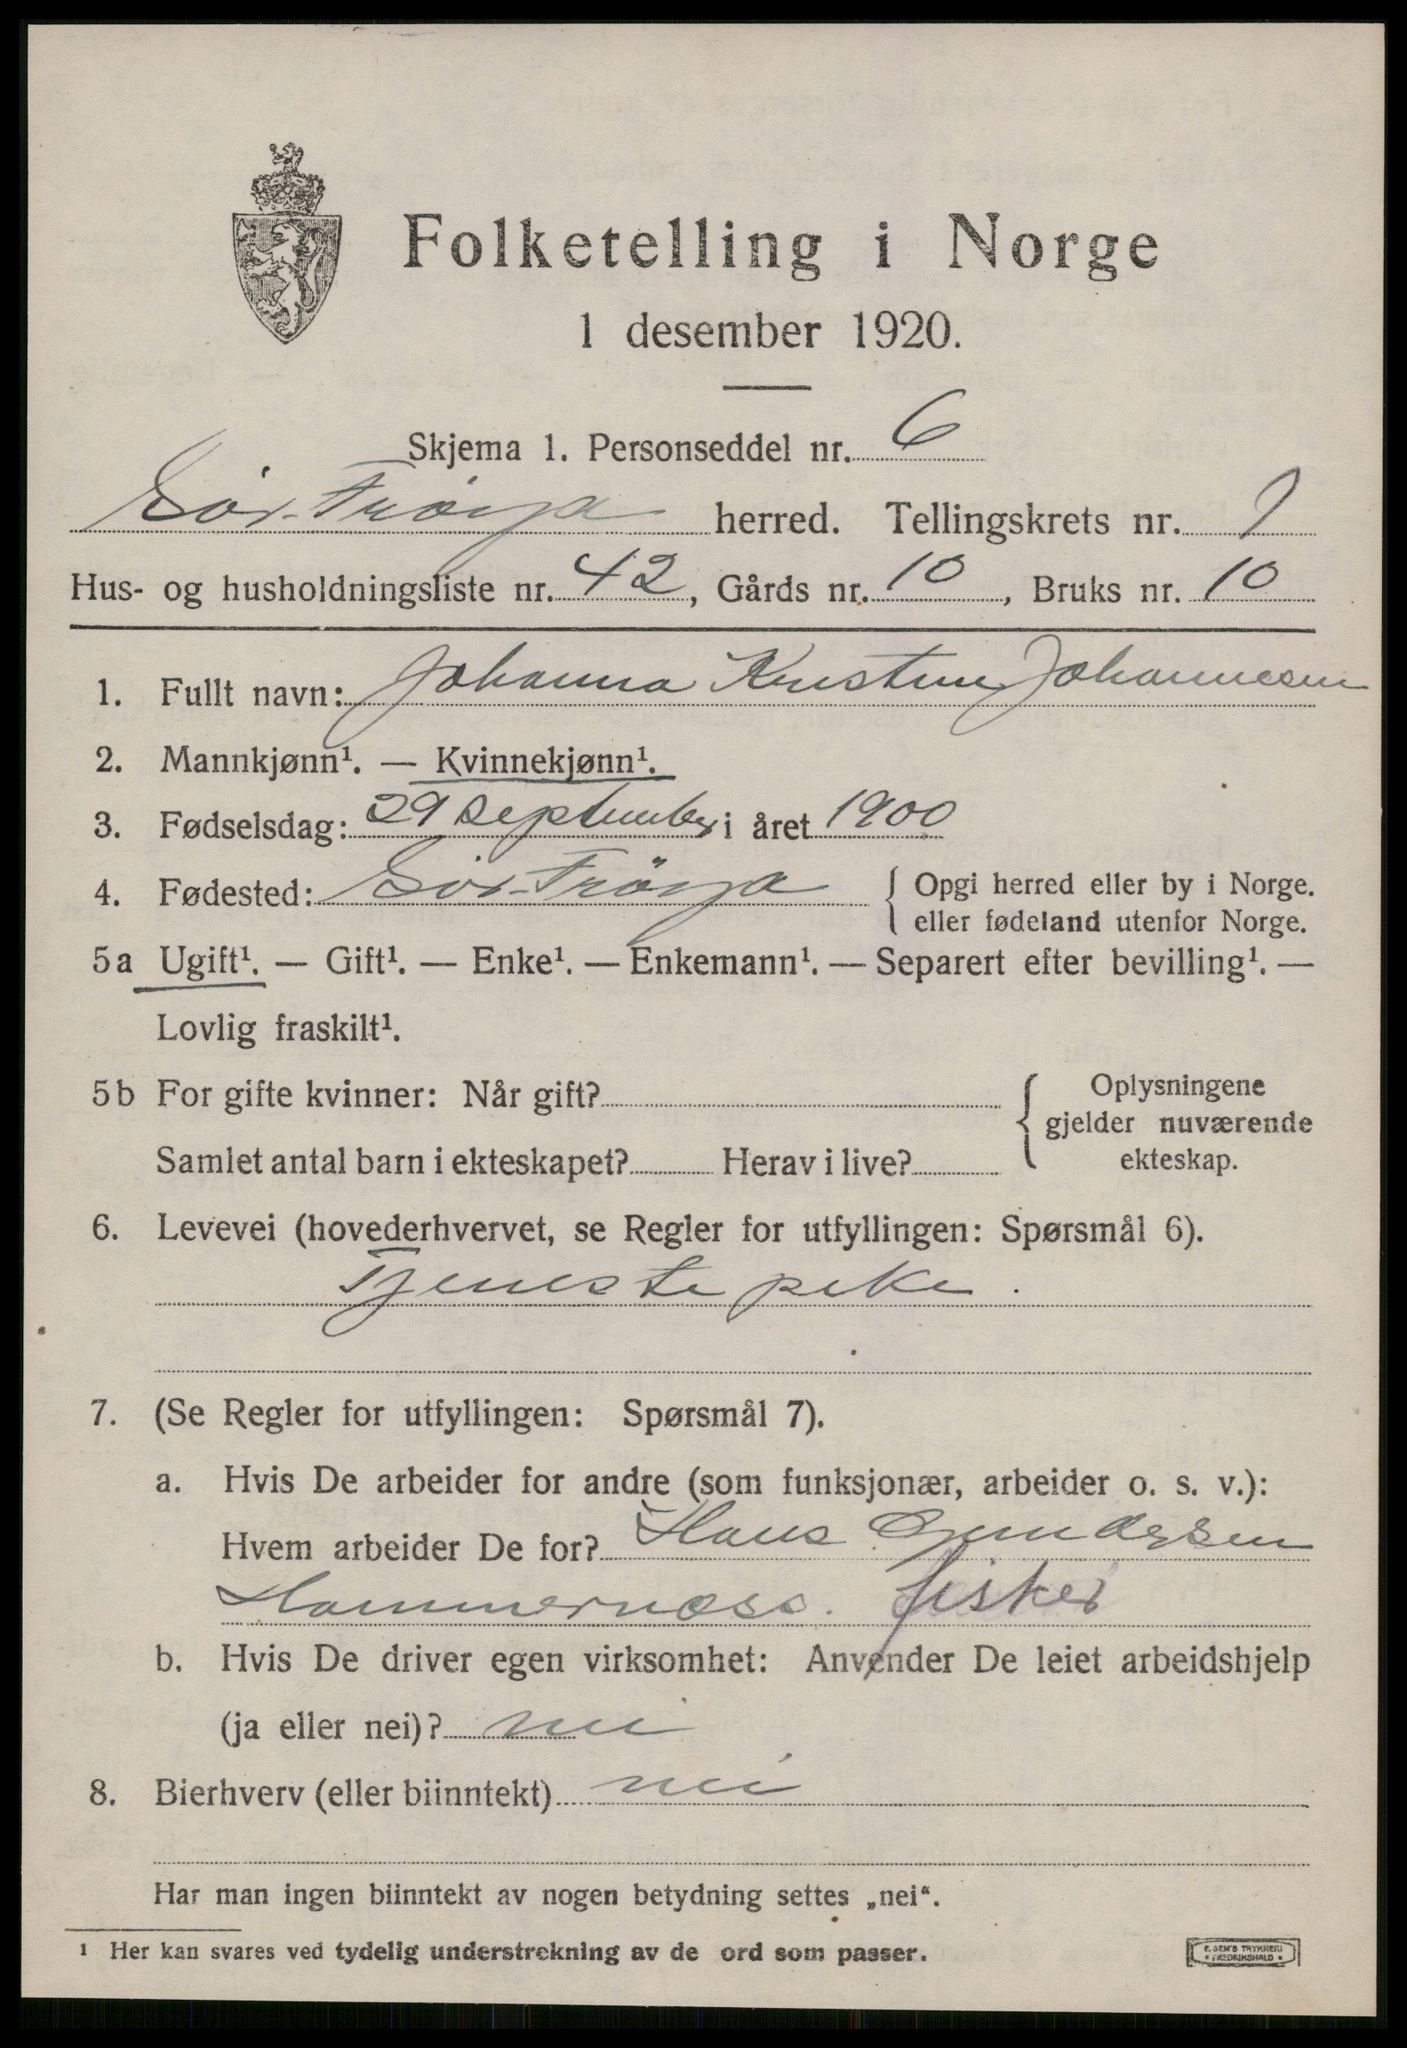 Folketelling i Norge
1 desember 1920.
Skjema 1. Personseddel nr. 6
Sör-Fröya herred. Tellingskrets nr. 9
Hus- og husholdningsliste nr. 42, Gårds nr. 10, Bruks nr. 10
1. Fullt navn: Johanna Kristine Johannesen
2. Mannkjønn¹. — Kvinnekjønn¹.
3. Fødselsdag: 29 september i året 1900
4. Fødested: Sör-Fröya { Opgi herred eller by i Norge.
eller fødeland utenfor Norge.
5a Ugift¹. — Gift¹. — Enke¹. — Enkemann¹. — Separert efter bevilling¹. —
Lovlig fraskilt¹.
5b For gifte kvinner: Når gift? { Oplysningene
gjelder nuværende
Samlet antal barn i ekteskapet? Herav i live? ekteskap.
6. Levevei (hovederhvervet, se Regler for utfyllingen: Spørsmål 6).
Tjenestepike.
7. (Se Regler for utfyllingen: Spørsmål 7).
a. Hvis De arbeider for andre (som funksjonær, arbeider o. s. v.):
Hvem arbeider De for? Hans Gundersen
Hammernæss. fisker
b. Hvis De driver egen virksomhet: Anvender De leiet arbeidshjelp
(ja eller nei)? nei
8. Bierhverv (eller biinntekt) nei
Har man ingen biinntekt av nogen betydning settes „nei“.
¹ Her kan svares ved tydelig understrekning av de ord som passer.
E. SEM'S TRYKKERI
• FREDRIKSHALD •